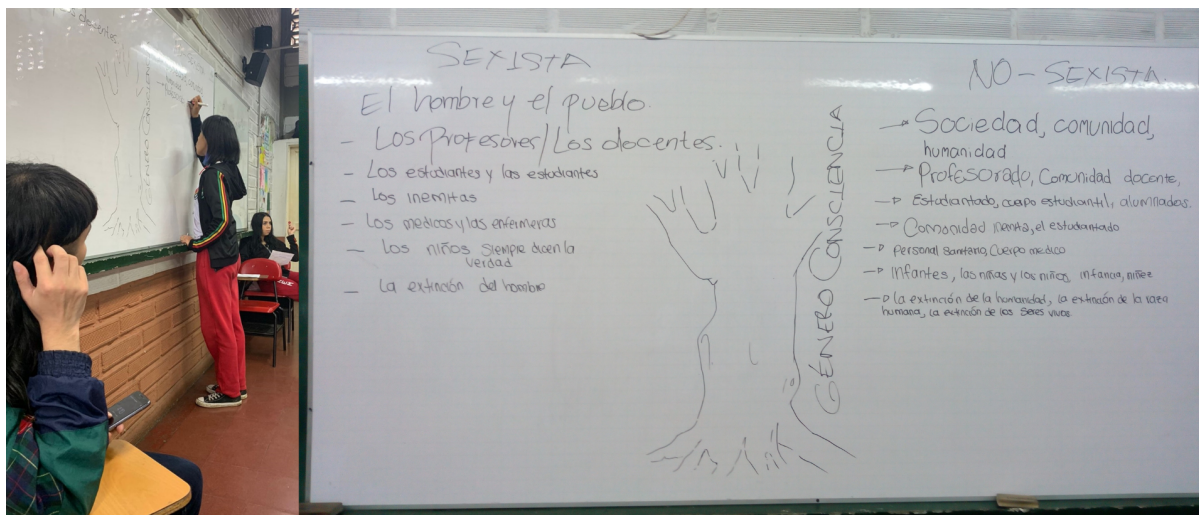 docentes.
GÉNERO CONSCIENCIA
SEXISTA
El hombre y el pueblo.
- Los Profesores/Los docentes.
- Los estudiantes y las estudiantes
- Los inemitas
- Los medicos y las enfermeras
- Los niños siempre dicen la
verdad
- La extinción del hombre
GÉNERO CONSCIENCIA
NO-SEXISTA.
→ Sociedad, comunidad,
humanidad
→ Profesorado, Comunidad docente,
→ Estudiantado, cuerpo estudiantil, alumnadas.
→ Comunidad inemita, el estudiantado
→ Personal Sanitario, Cuerpo medico
→ Infantes, las niñas y los niños, infancia, niñez
→ La extinción de la humanidad, la extinción de la raza
humana, la extinción de los seres vivos